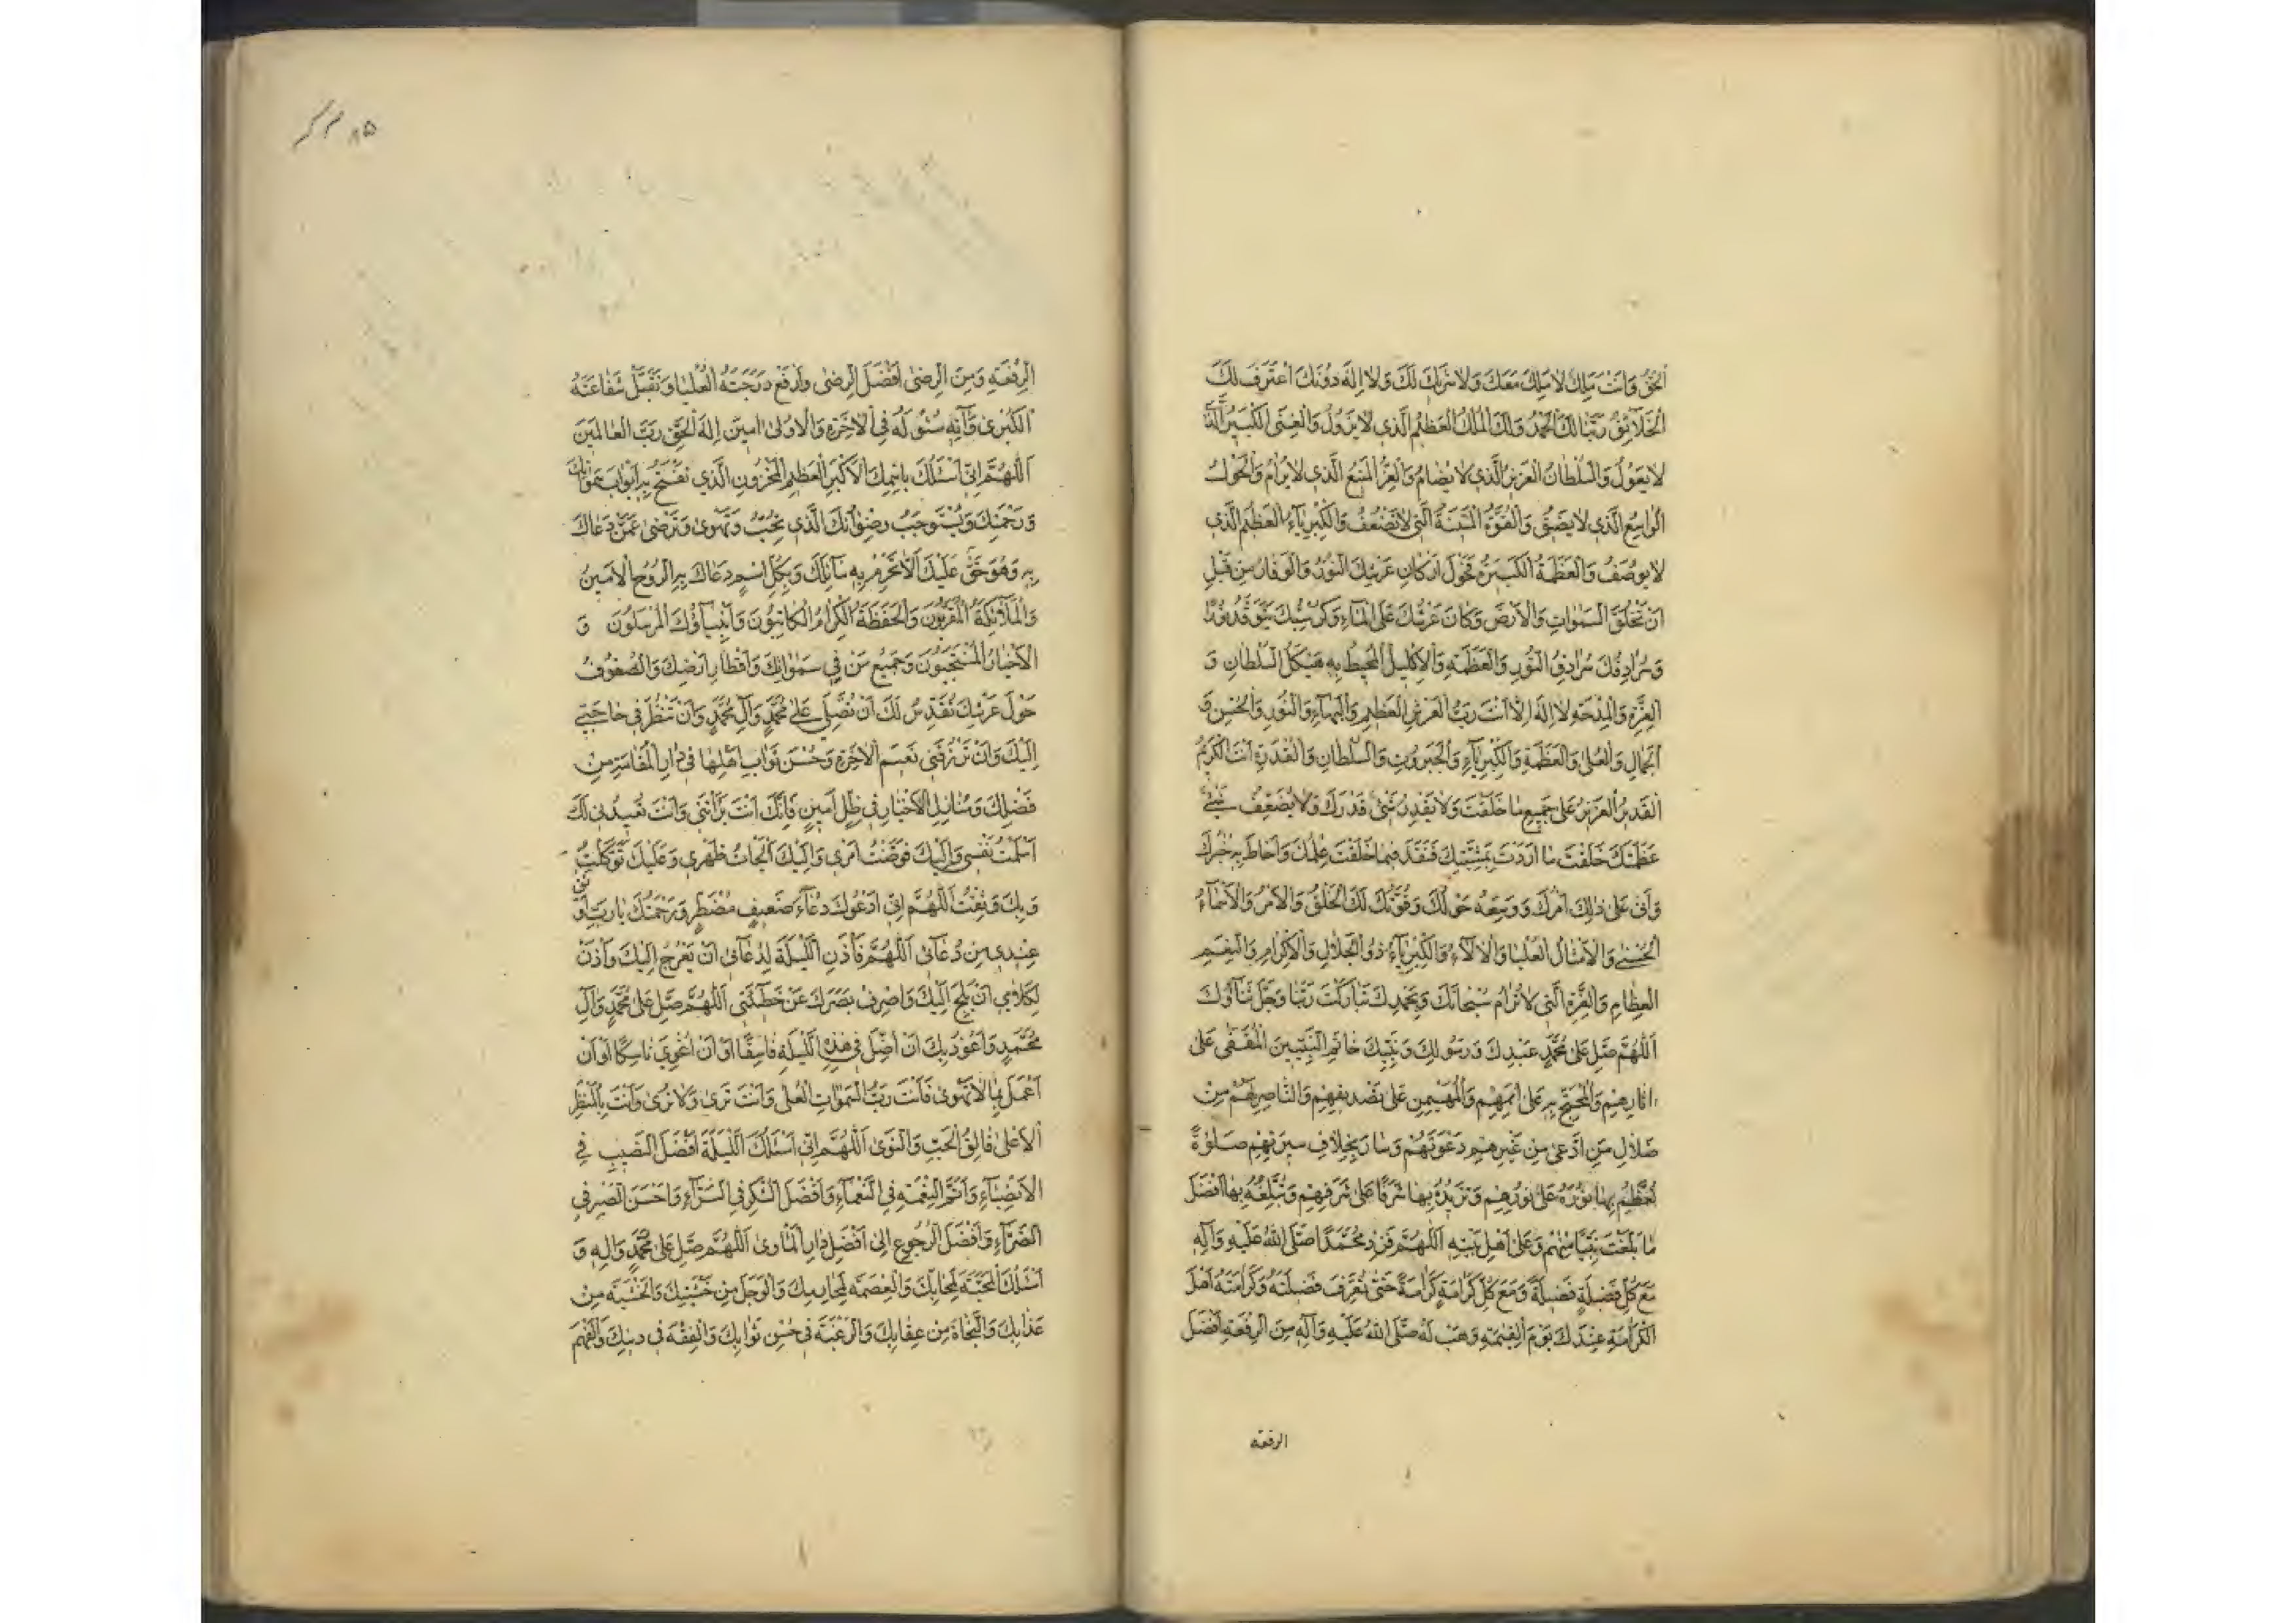 الْحَقُّ وَاَنْتَ مَلِكٌ لَا مَلِكَ مَعَكَ وَلَا شَرِيكَ لَكَ وَلَا اِلٰهَ دُونَكَ اعْتَرَفَ لَكَ
الْخَلَائِقُ رَبَّنَا لَكَ الْحَمْدُ وَلَكَ الْمُلْكُ الْعَظِيمُ الَّذِي لَا يَزُولُ وَالْغِنَى الْكَبِيرُ الَّذِي
لَا يَعُولُ وَالسُّلْطَانُ الْعَزِيزُ الَّذِي لَا يُضَامُ وَالْعِزُّ الْمَنِيعُ الَّذِي لَا يُرَامُ وَالْحَوْلُ
الْوَاسِعُ الَّذِي لَا يَضِيقُ وَالْقُوَّةُ الْمَتِينَةُ الَّتِي لَا تَضْعُفُ وَالْكِبْرِيَاءُ الْعَظِيمُ الَّذِي
لَا يُوصَفُ وَالْعَظَمَةُ الْكَبِيرَةُ فَحَوْلَ اَرْكَانِ عَرْشِكَ النُّورُ وَالْوَقَارُ مِنْ قَبْلِ
اَنْ تَخْلُقَ السَّمٰوَاتِ وَالْاَرْضَ وَكَانَ عَرْشُكَ عَلَى الْمَاءِ وَكُرْسِيُّكَ يَتَوَقَّدُ نُورًا
وَسُرَادِقُكَ سُرَادِقُ النُّورِ وَالْعَظَمَةِ وَالْاِكْلِيلُ الْمُحِيطُ بِهِ هَيْكَلُ السُّلْطَانِ وَ
الْعِزَّةِ وَالْمِدْحَةِ لَا اِلٰهَ اِلَّا اَنْتَ رَبُّ الْعَرْشِ الْعَظِيمِ وَالْبَهَاءِ وَالنُّورِ وَالْحُسْنِ وَ
الْجَمَالِ وَالْعُلٰى وَالْعَظَمَةِ وَالْكِبْرِيَاءِ وَالْجَبَرُوتِ وَالسُّلْطَانِ وَالْقُدْرَةِ اَنْتَ الْكَرِيمُ
الْقَدِيرُ الْعَزِيزُ عَلٰى جَمِيعِ مَا خَلَقْتَ وَلَا يَقْدِرُ شَيْءٌ قَدْرَكَ وَلَا يُضَعِّفُ شَيْءٌ
عَظَمَتَكَ خَلَقْتَ مَا اَرَدْتَ بِمَشِيَّتِكَ فَنَفَذَ فِيمَا خَلَقْتَ عِلْمُكَ وَاَحَاطَ بِهِ خُبْرُكَ
وَاَتٰى عَلٰى ذٰلِكَ اَمْرُكَ وَوَسِعَهُ حَوْلُكَ وَقُوَّتُكَ لَكَ الْخَلْقُ وَالْاَمْرُ وَالْاَسْمَاءُ
الْحُسْنٰى وَالْاَمْثَالُ الْعُلْيَا وَالْاٰلَاءُ وَالْكِبْرِيَاءُ ذُو الْجَلَالِ وَالْاِكْرَامِ وَالنِّعَمِ
الْعِظَامِ وَالْعِزَّةِ الَّتِي لَا تُرَامُ سُبْحَانَكَ وَبِحَمْدِكَ تَبَارَكْتَ رَبَّنَا وَجَلَّ ثَنَاؤُكَ
اَللّٰهُمَّ صَلِّ عَلٰى مُحَمَّدٍ عَبْدِكَ وَرَسُولِكَ وَنَبِيِّكَ خَاتَمِ النَّبِيِّينَ الْمُقَفّٰى عَلٰى
اٰثَارِهِمْ وَالْمُحْتَجِّ بِهِ عَلٰى اُمَمِهِمْ وَالْمُهَيْمِنِ عَلٰى تَصْدِيقِهِمْ وَالنَّاصِرِ لَهُمْ مِنْ
ضَلَالِ مَنِ ادَّعٰى مِنْ غَيْرِهِمْ دَعْوَتَهُمْ وَسَارَ بِخِلَافِ سِيرَتِهِمْ صَلٰوةً
تُعَظِّمُ بِهَا نُورَهُ عَلٰى نُورِهِمْ وَتَزِيدُهُ بِهَا شَرَفًا عَلٰى شَرَفِهِمْ وَتُبَلِّغُهُ بِهَا اَفْضَلَ
مَا بَلَّغْتَ نَبِيًّا مِنْهُمْ وَعَلٰى اَهْلِ بَيْتِهِ اَللّٰهُمَّ فَزِدْ مُحَمَّدًا صَلَّى اللّٰهُ عَلَيْهِ وَاٰلِهِ
مَعَ كُلِّ فَضِيلَةٍ فَضِيلَةً وَمَعَ كُلِّ كَرَامَةٍ كَرَامَةً حَتّٰى تُعَرِّفَ فَضِيلَتَهُ وَكَرَامَتَهُ اَهْلَ
الْكَرَامَةِ عِنْدَكَ يَوْمَ الْقِيٰمَةِ وَهَبْ لَهُ صَلَّى اللّٰهُ عَلَيْهِ وَاٰلِهِ مِنَ الرِّفْعَةِ اَفْضَلَ
الرفعة
٨٥
الرِّفْعَةِ وَمِنَ الرِّضٰى اَفْضَلَ الرِّضٰى وَارْفَعْ دَرَجَتَهُ الْعُلْيَا وَتَقَبَّلْ شَفَاعَتَهُ
الْكُبْرٰى وَاٰتِهِ سُؤْلَهُ فِي الْاٰخِرَةِ وَالْاُولٰى اٰمِينَ اِلٰهَ الْحَقِّ رَبَّ الْعَالَمِينَ
اَللّٰهُمَّ اِنِّي اَسْئَلُكَ بِاسْمِكَ الْاَكْبَرِ الْعَظِيمِ الْمَخْزُونِ الَّذِي تَفْتَحُ بِهِ اَبْوَابَ سَمٰوَاتِكَ
وَرَحْمَتِكَ وَيَسْتَوْجِبُ رِضْوَانَكَ الَّذِي تُحِبُّ وَتَهْوٰى وَتَرْضٰى عَمَّنْ دَعَاكَ
بِهِ وَهُوَ حَقٌّ عَلَيْكَ اَلَّا تَحْرِمَ بِهِ سَائِلَكَ وَبِكُلِّ اسْمٍ دَعَاكَ بِهِ الرُّوحُ الْاَمِينُ
وَالْمَلَائِكَةُ الْمُقَرَّبُونَ وَالْحَفَظَةُ الْكِرَامُ الْكَاتِبُونَ وَاَنْبِيَاؤُكَ الْمُرْسَلُونَ وَ
الْاَخْيَارُ الْمُنْتَجَبُونَ وَجَمِيعُ مَنْ فِي سَمٰوَاتِكَ وَاَقْطَارِ اَرْضِكَ وَالصُّفُوفُ
حَوْلَ عَرْشِكَ تُقَدِّسُ لَكَ اَنْ تُصَلِّيَ عَلٰى مُحَمَّدٍ وَاٰلِ مُحَمَّدٍ وَاَنْ تَنْظُرَ فِي حَاجَتِي
اِلَيْكَ وَاَنْ تَرْزُقَنِي نَعِيمَ الْاٰخِرَةِ وَحُسْنَ ثَوَابِ اَهْلِهَا فِي دَارِ الْمُقَامَةِ مِنْ
فَضْلِكَ وَمَنَازِلِ الْاَخْيَارِ فِي ظِلٍّ اَمِينٍ فَاِنَّكَ اَنْتَ بَرَأْتَنِي وَاَنْتَ تُعِيدُنِي لَكَ
اَسْلَمْتُ نَفْسِي وَاِلَيْكَ فَوَّضْتُ اَمْرِي وَاِلَيْكَ اَلْجَأْتُ ظَهْرِي وَعَلَيْكَ تَوَكَّلْتُ
وَبِكَ وَثِقْتُ اَللّٰهُمَّ اِنِّي اَدْعُوكَ دُعَاءَ ضَعِيفٍ مُضْطَرٍّ وَرَحْمَتُكَ يَا رَبِّ اَوْثَقُ
عِنْدِي مِنْ دُعَائِي اَللّٰهُمَّ فَأْذَنِ اللَّيْلَةَ لِدُعَائِي اَنْ يَعْرُجَ اِلَيْكَ وَأْذَنْ
لِكَلَامِي اَنْ يَلِجَ اِلَيْكَ وَاصْرِفْ بَصَرَكَ عَنْ خَطِيئَتِي اَللّٰهُمَّ صَلِّ عَلٰى مُحَمَّدٍ وَاٰلِ
مُحَمَّدٍ وَاَعُوذُ بِكَ اَنْ اَضِلَّ فِي هٰذِهِ اللَّيْلَةِ فَاسِقًا اَوْ اَنْ اُغْوِيَ نَاسِكًا اَوْ اَنْ
اَعْمَلَ بِمَا لَا تَهْوٰى فَاَنْتَ رَبُّ السَّمٰوَاتِ الْعُلٰى وَاَنْتَ تَرٰى وَلَا تُرٰى وَاَنْتَ بِالْمَنْظَرِ
الْاَعْلٰى فَالِقُ الْحَبِّ وَالنَّوٰى اَللّٰهُمَّ اِنِّي اَسْئَلُكَ اللَّيْلَةَ اَفْضَلَ النَّصِيبِ فِي
الْاَنْصِبَاءِ وَاَتَمَّ النِّعْمَةِ فِي النَّعْمَاءِ وَاَفْضَلَ الشُّكْرِ فِي السَّرَّاءِ وَاَحْسَنَ الصَّبْرِ فِي
الضَّرَّاءِ وَاَفْضَلَ الرُّجُوعِ اِلٰى اَفْضَلِ دَارِ الْمَأْوٰى اَللّٰهُمَّ صَلِّ عَلٰى مُحَمَّدٍ وَاٰلِهِ وَ
اَسْئَلُكَ الْمَحَبَّةَ لِمَحَابِّكَ وَالْعِصْمَةَ لِمَحَارِمِكَ وَالْوَجَلَ مِنْ خَشْيَتِكَ وَالْخَشْيَةَ مِنْ
عَذَابِكَ وَالنَّجَاةَ مِنْ عِقَابِكَ وَالرَّغْبَةَ فِي حُسْنِ ثَوَابِكَ وَالْفِقْهَ فِي دِينِكَ وَالْفَهْمَ